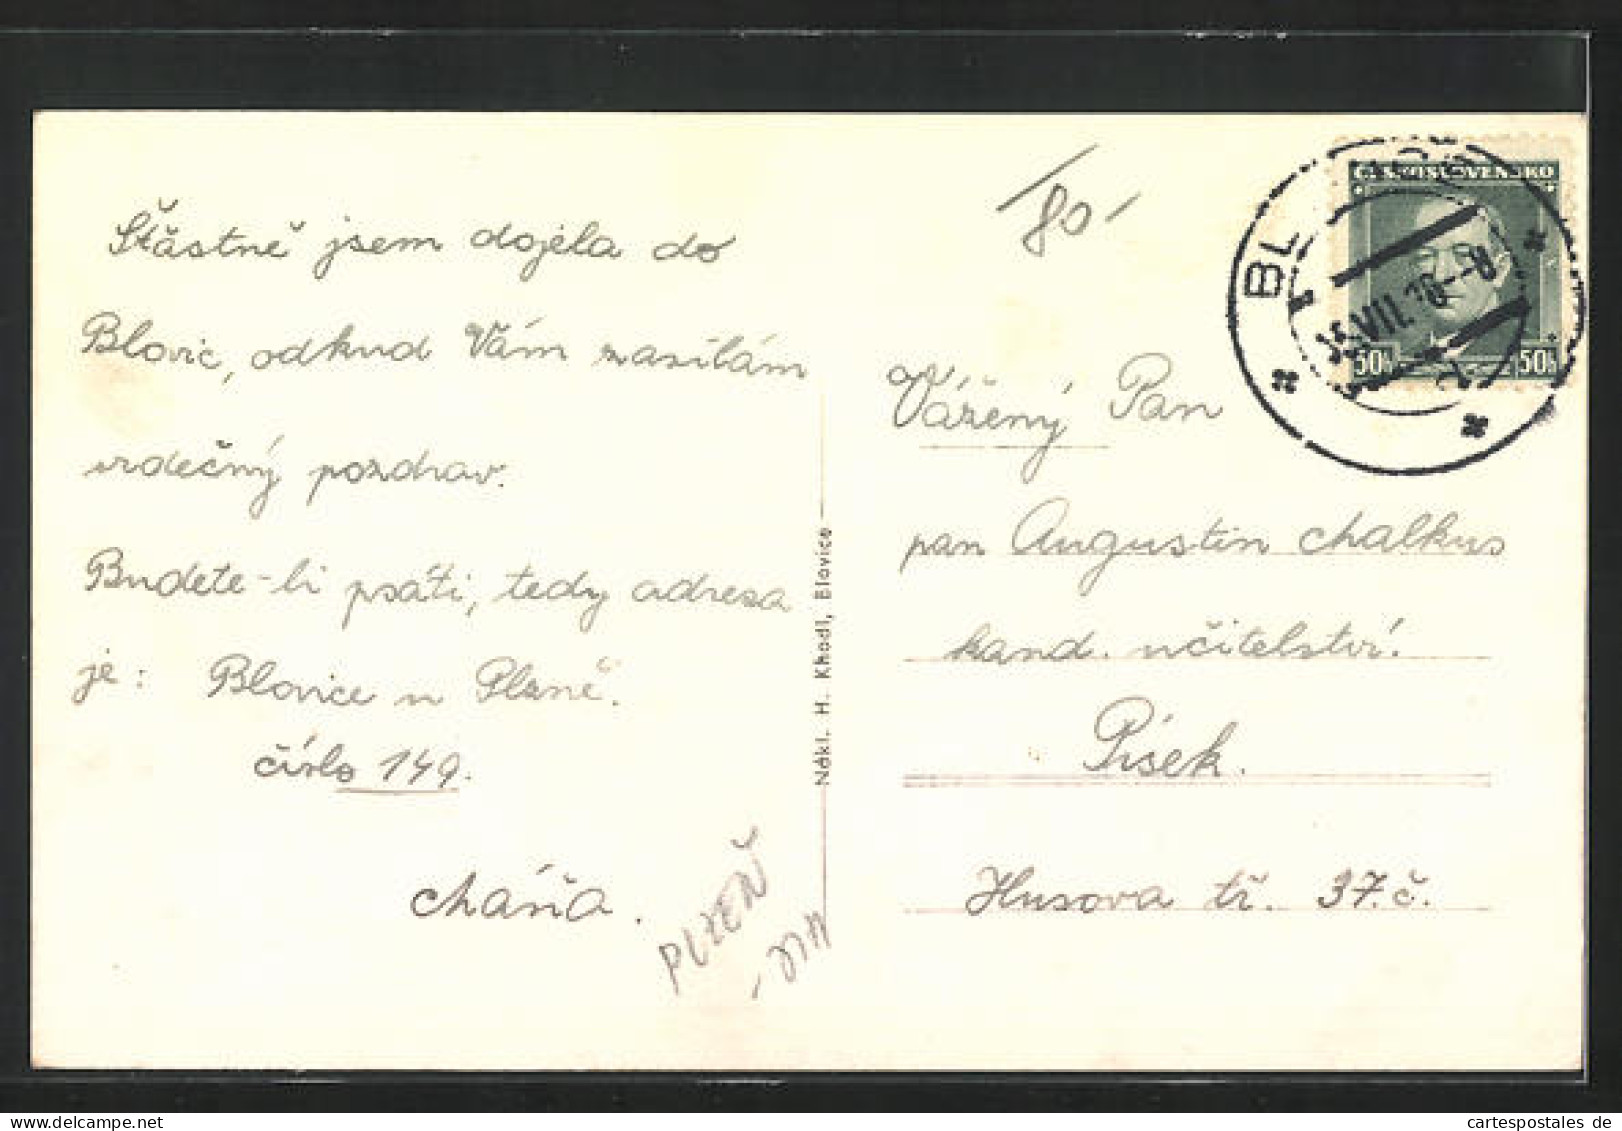 Šťastně jsem dojela do
Blovic, odkud Vám zasílám
srdečný pozdrav.
Budete-li psáti, tedy adresa
je: Blovice u Plzně.
číslo 149.
Mářa.
PLZEŇ
JIH
Nákl. H. Khodl, Blovice
80
ČESKOSLOVENSKO
50h 50h
BL
VII. 10--8
Vážený Pan
pan Augustin Malkus
kand. učitelství.
Písek.
Husova tř. 37.č.
cartespostales de